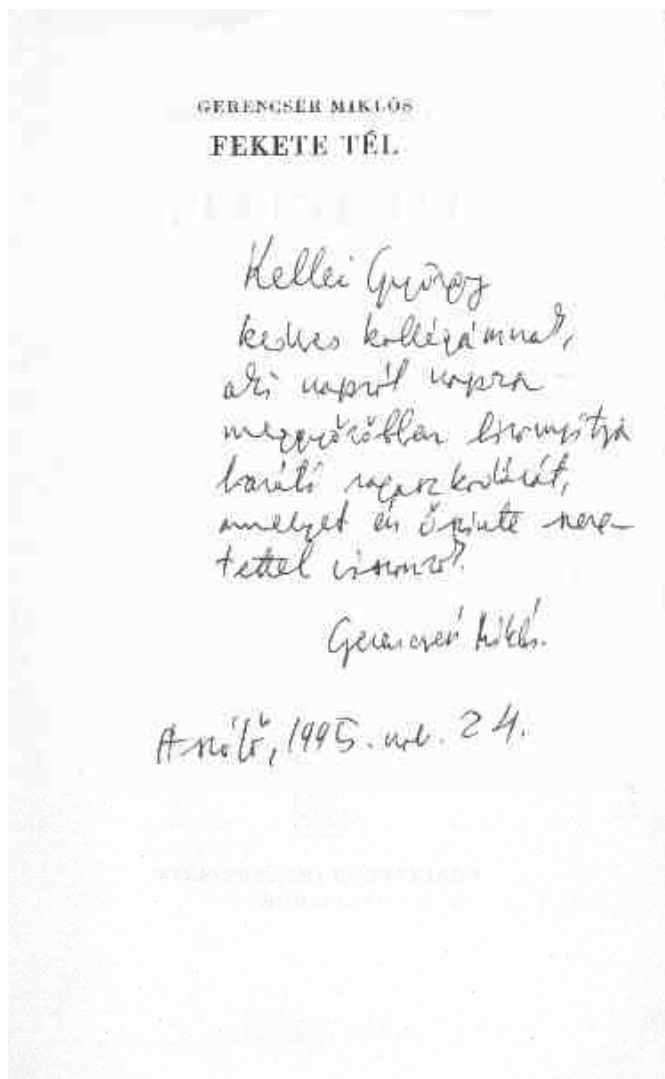 GERENCSÉR MIKLÓS
FEKETE TÉL
Kellei György
kedves kollégámnak,
aki napról napra
meggyőzőbben bizonyítja
baráti ragaszkodását,
amelyet én őszinte szere-
tettel viszonzok.
Gerencsér Miklós.
1995. nov. 24.